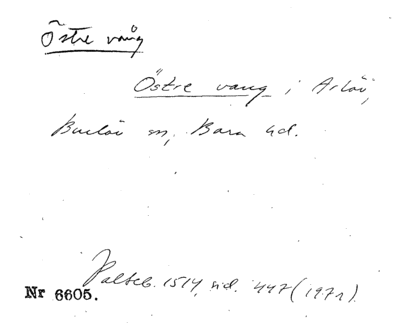 Östre vång
Östre vang i Arlöv,
Burlöv sn, Bara hd.
Palteb. 1514, sid. 447 (1971).
Nr 6605.